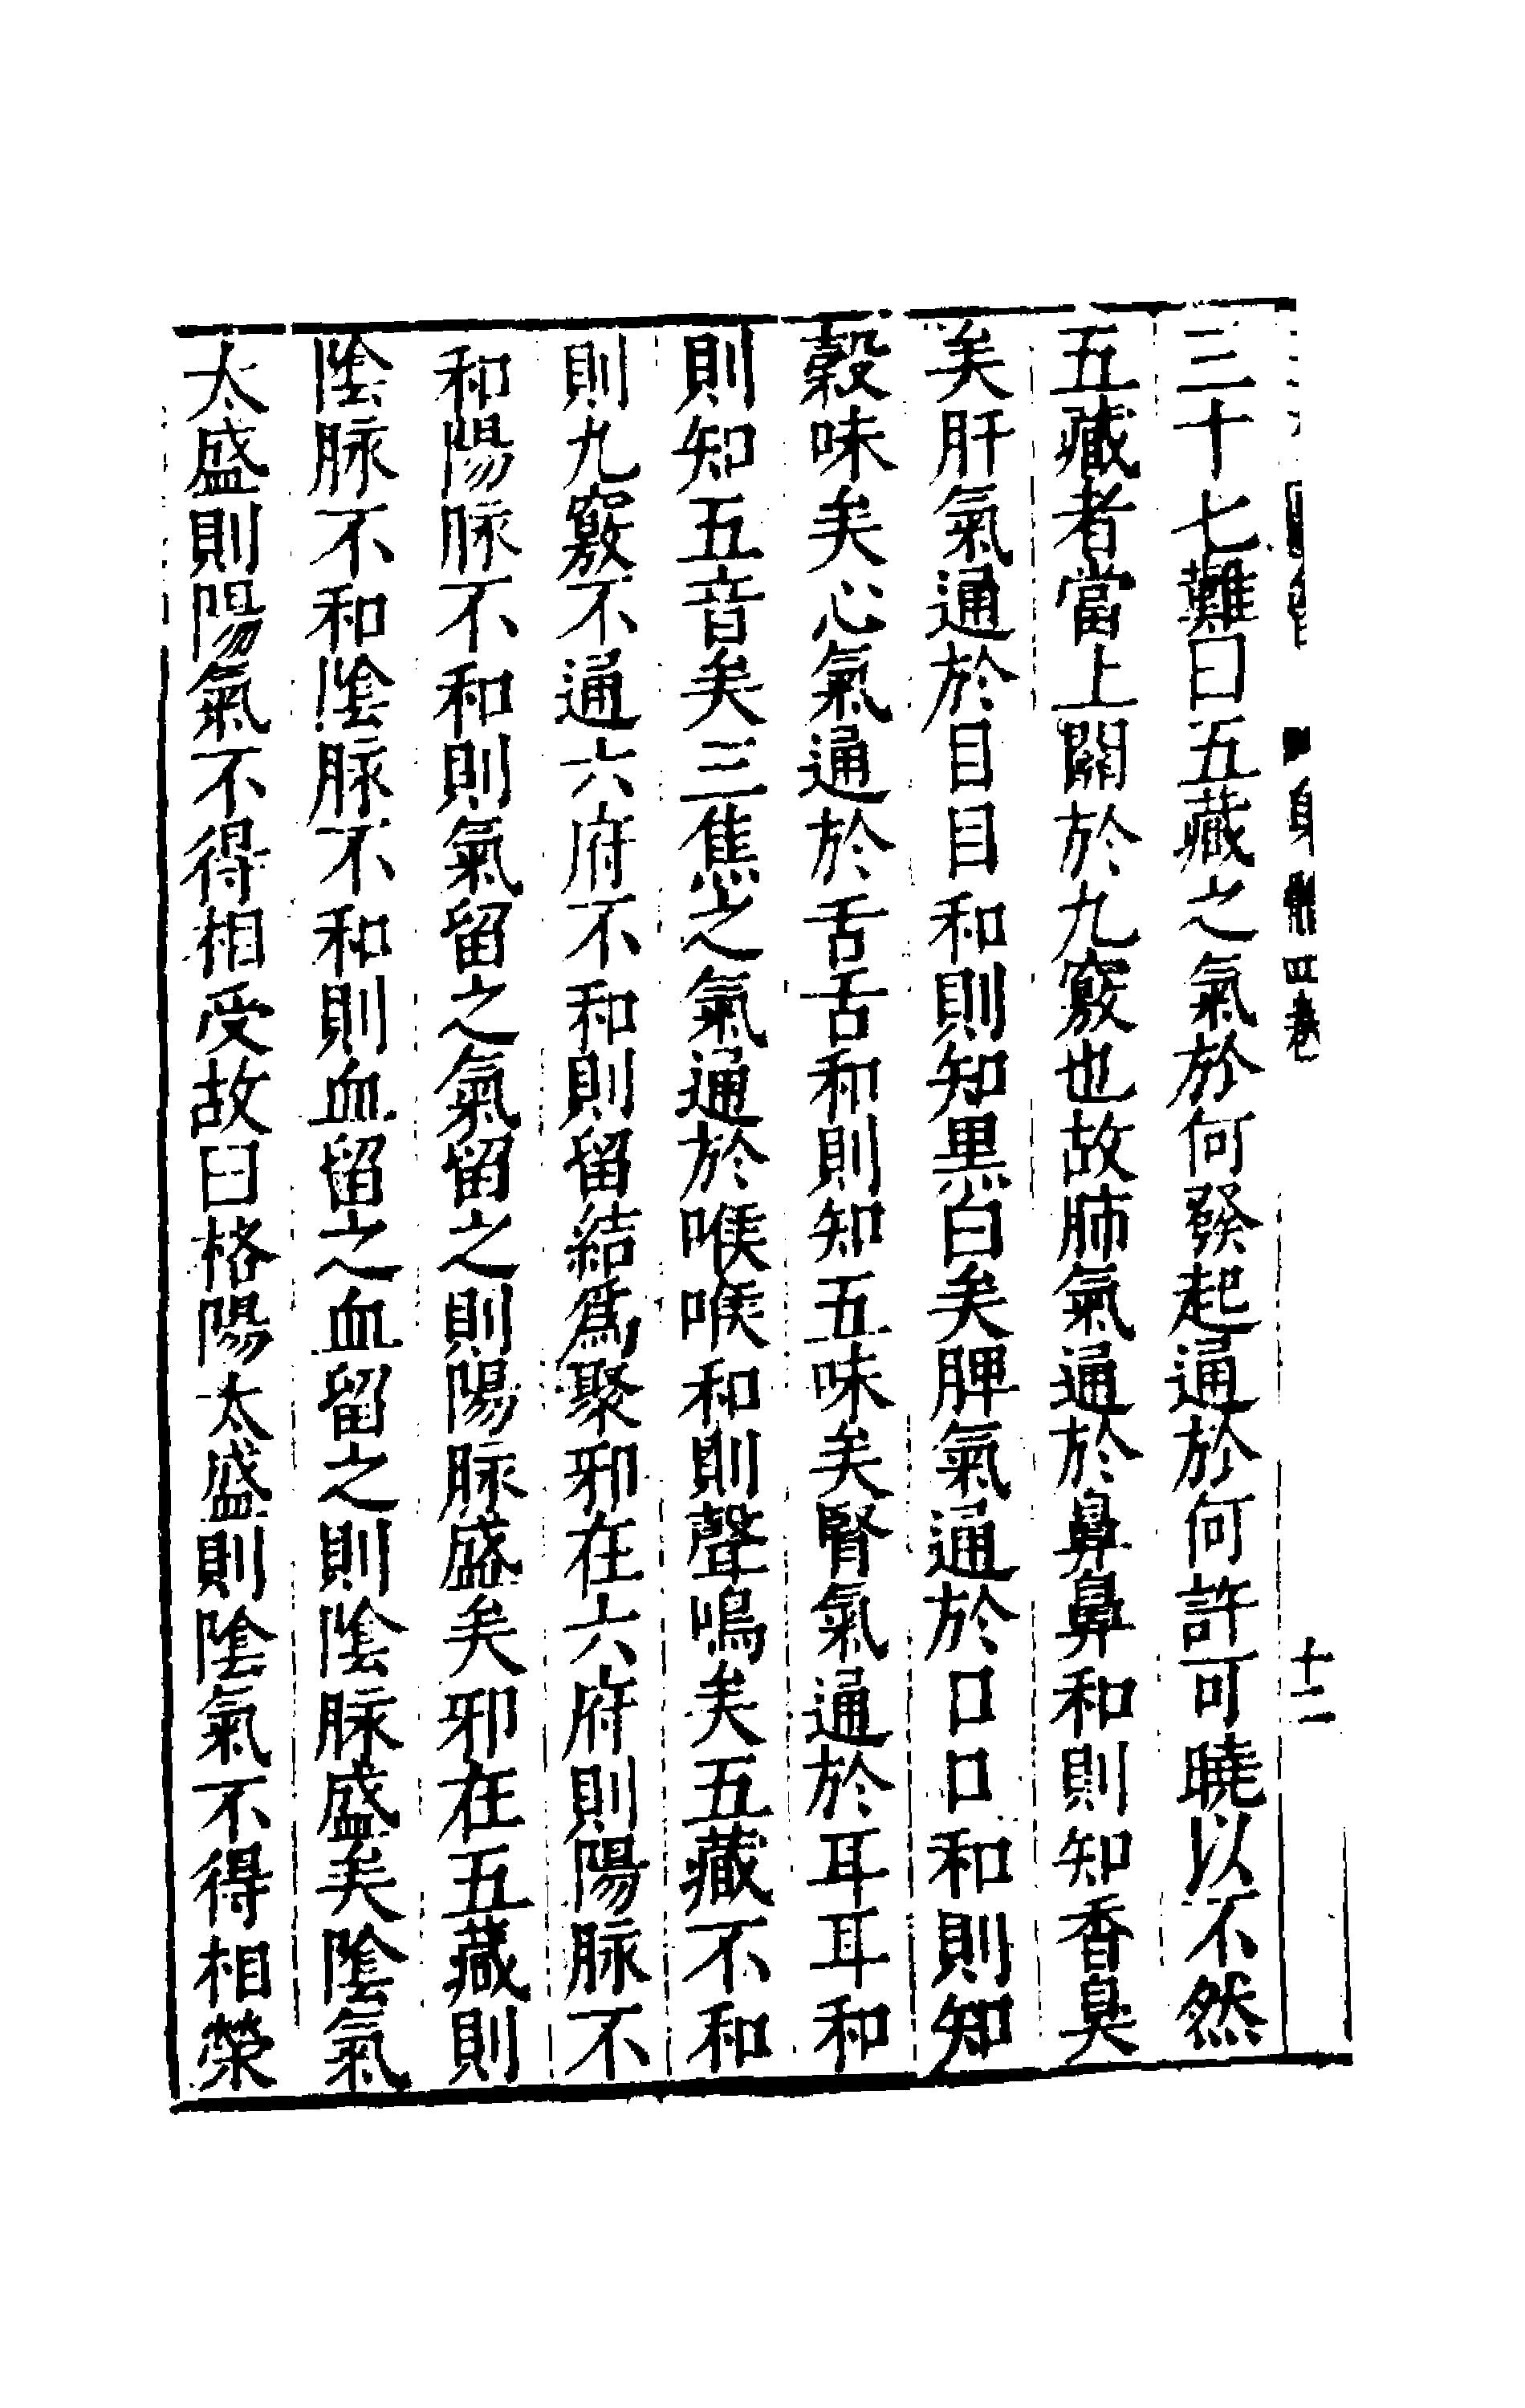 三十七難曰五藏之氣於何發起通於何許可曉以不然
五藏者當上關於九竅也故肺氣通於鼻鼻和則知香臭
矣肝氣通於目目和則知黒白矣脾氣通於口口和則知
穀味矣心氣通於舌舌和則知五味矣腎氣通於耳耳和
則知五音矣三焦之氣通於喉喉和則聲鳴矣五藏不和
則九竅不通六府不和則留結爲聚邪在六府則陽脉不
和陽脉不和則氣留之氣留之則陽脉盛矣邪在五藏則
陰脉不和陰脉不和則血留之血留之則陰脉盛矣陰氣
太盛則陽氣不得相受故曰格陽太盛則陰氣不得相榮
身
四卷
十二